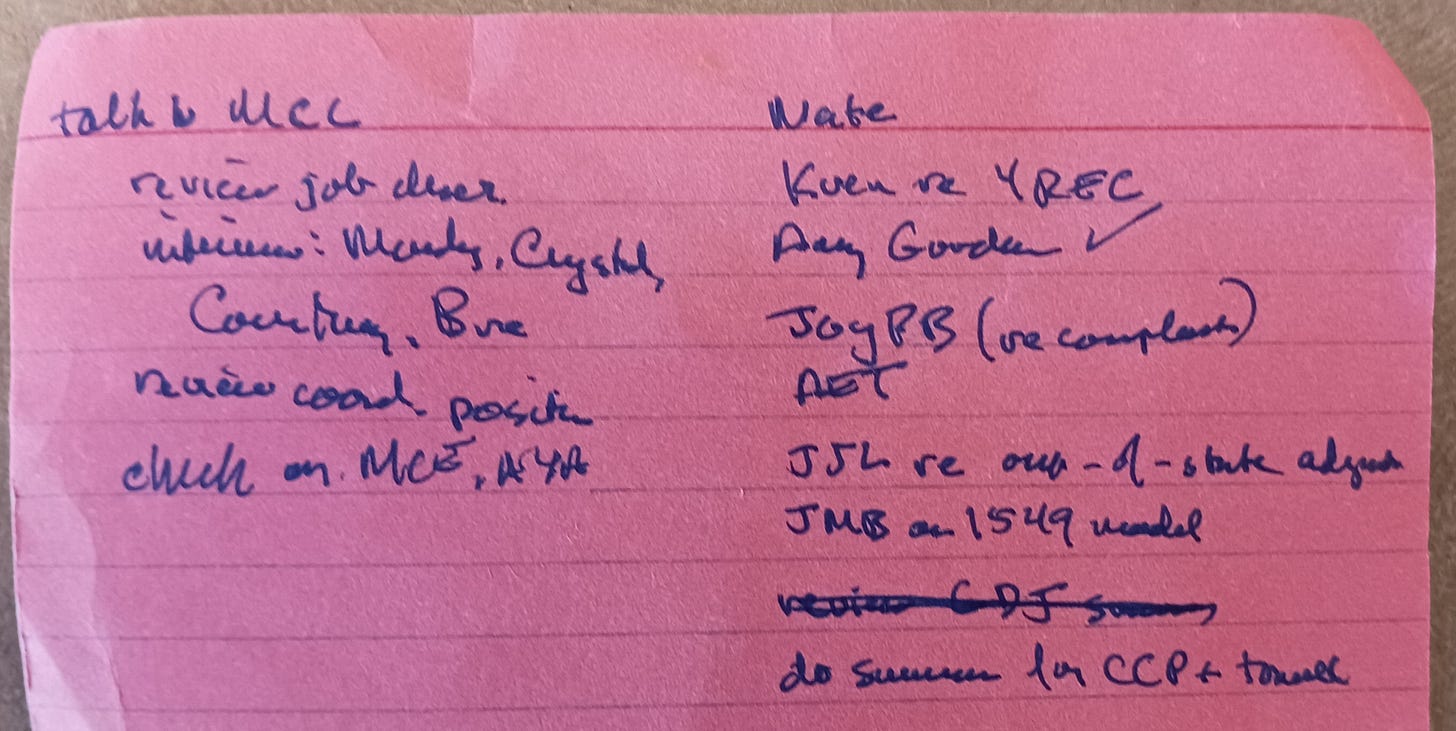 talk to MCC
review job descr.
interviews: Mandy, Crystal,
Courtney, Bre
review coord. position
check on MCE, AYA
Nate
Kven re YREC
Amy Gooden ✓
Joy PB (re complaints)
AET
JJL re out-of-state
JMB on 1549 model
review CDJ summary
do summary for CCP +